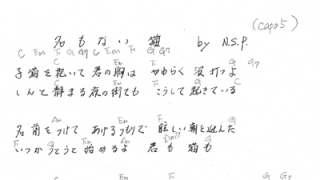 (capo5)
名もない猫 by N.S.P.
C Em F G G7 C Em F G G7
子猫を抱いて君の胸は やわらく 波打つよ
C Em F G G7
しんと静まる夜の街でも こうして起きている
F Em F C
名前をつけて あげるつもりで 眩しい朝を迎えた
F Em F G
いつかうとうと始めるよ 君も 猫も